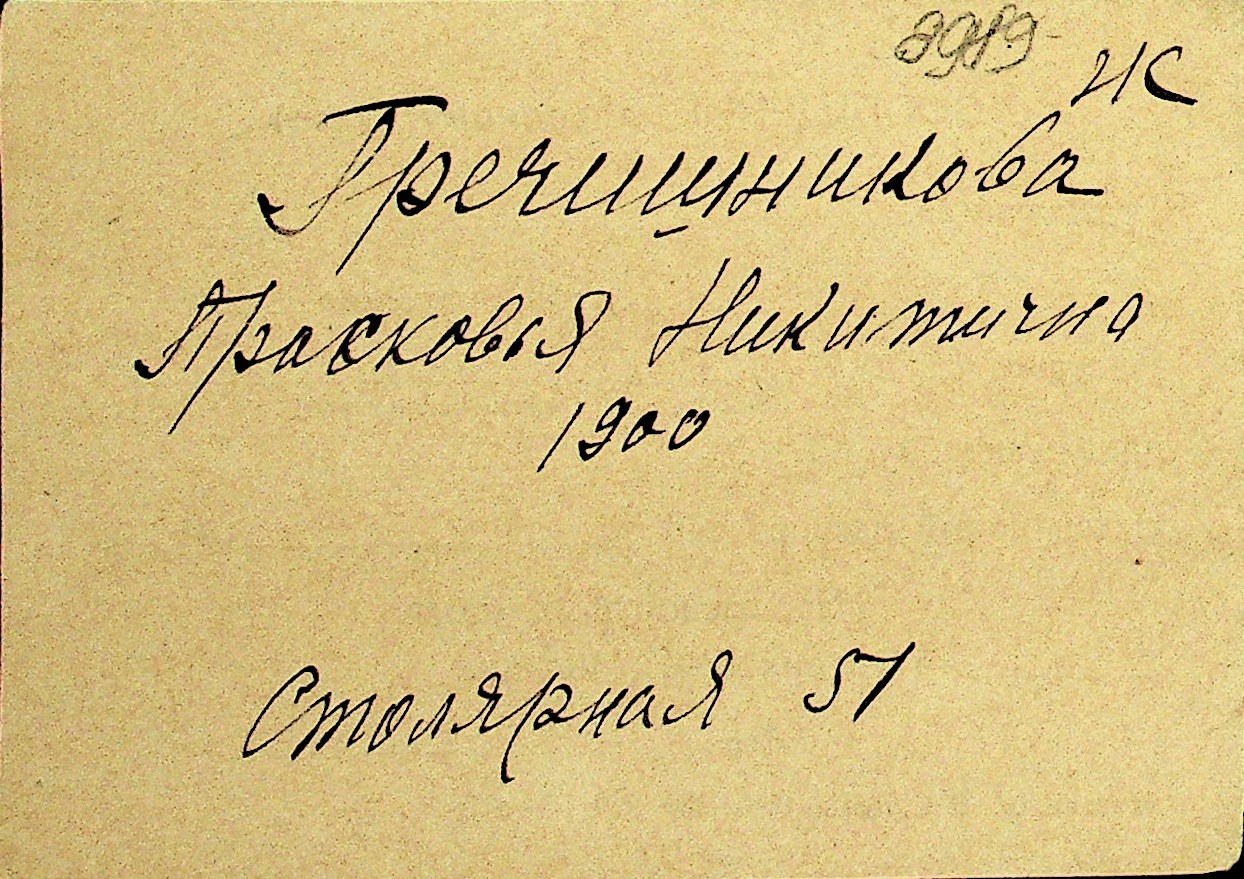 Ж
Гречишникова
Прасковья Никитична
1900
Столярная 51